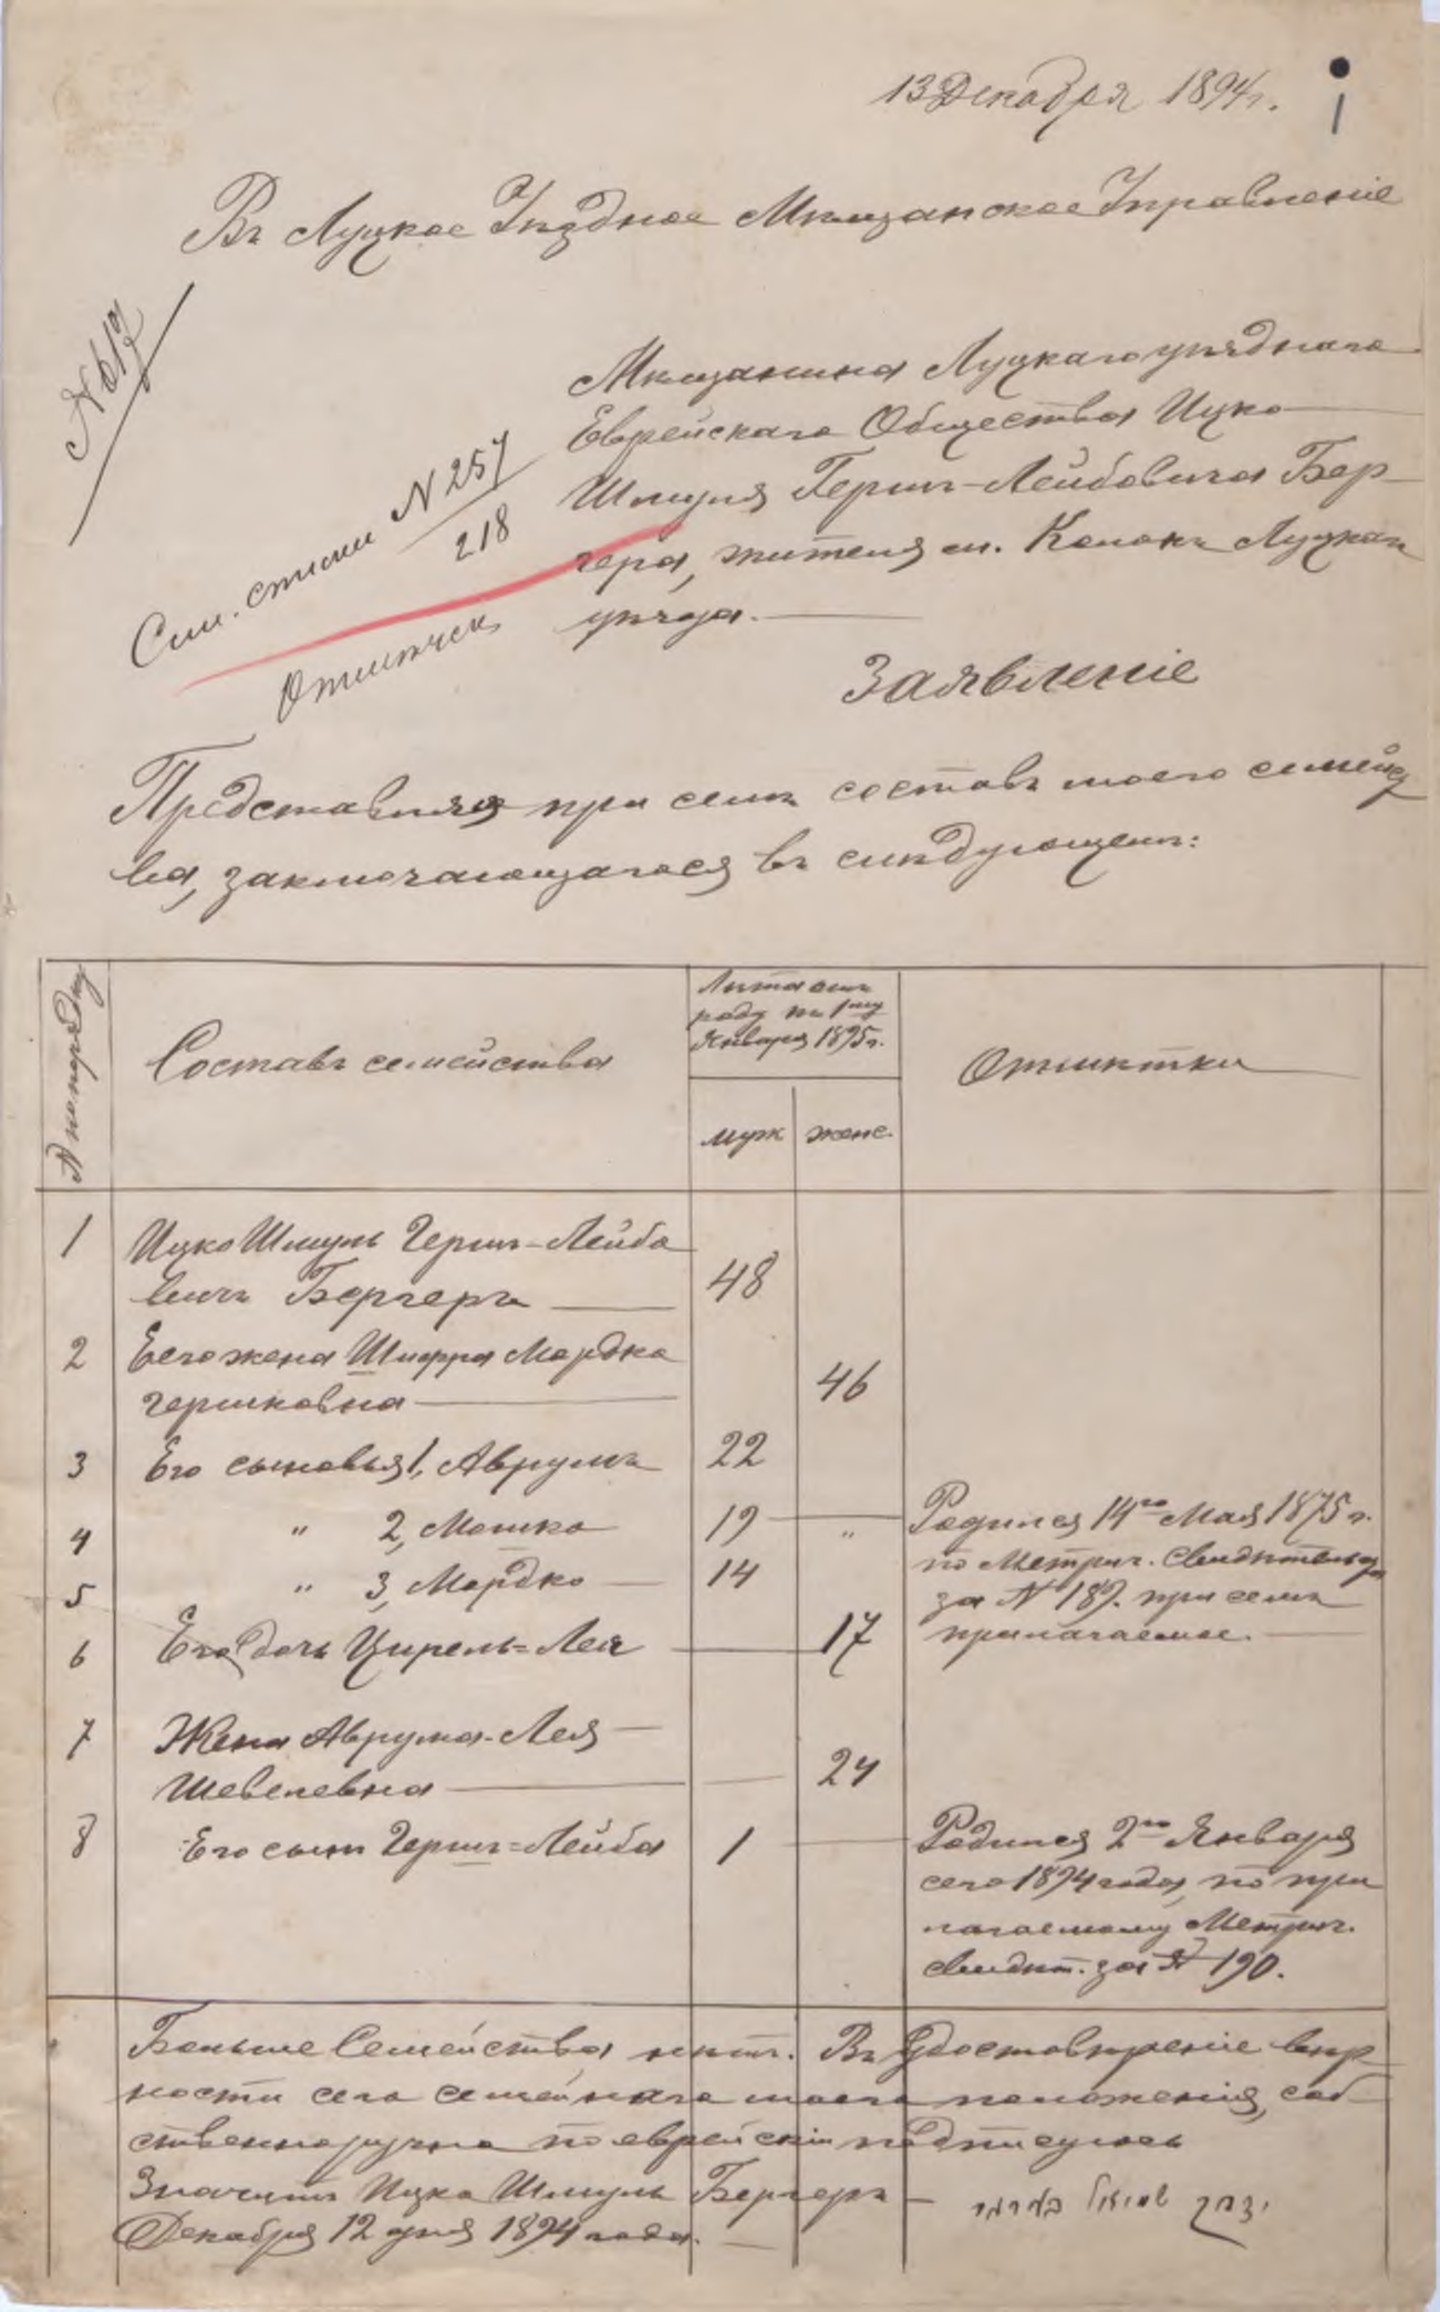 13 Декабря 1894 г.
Въ Луцкое Уѣздное Мѣщанское Управленіе
№ 617
Мѣщанина Луцкаго уѣзднаго
Еврейскаго Общества Ицко
Шмуля Гершъ-Лейбовича Бер-
гера, жителя м. Колокъ Луцкаго
уѣзда.
Сем. списки № 257
218
Отмѣчен
Заявленіе
Представляя при семъ составъ моего семейст
ва, заключающагося въ слѣдующемъ:
№ по порядку
Составъ семейства
Лѣта отъ
роду къ 1му
Января 1895 г.
муж
женс.
Отмѣтки
1
Ицко Шмуль Гершъ-Лейбо
вичъ Бергеръ
48
2
Его жена Шифра Мордко
гершковна
46
3
Его сыновья 1, Аврумъ
22
4
" 2, Мошко
19
"
Родился 14го Мая 1875 г.
по Метрич. Свидѣтельству
за № 189. при семъ
прилагаемое.
5
" 3, Мордко
14
6
Его дочь Цирель=Лея
17
7
Жена Аврума-Лея
Шевелевна
24
8
Его сынъ Гершъ=Лейба
1
Родился 2го Января
сего 1894 года, по при
лагаемому Метрич.
свидѣт. за № 190.
Больше Семейства нѣтъ. Въ Удостовѣреніе вѣр-
ности сего семейнаго моего положенія, соб-
ственноручно по еврейски подписуюсь
Значитъ Ицко Шмуль Бергеръ — יצחק שמואל בערגער
Декабря 12 дня 1894 года.